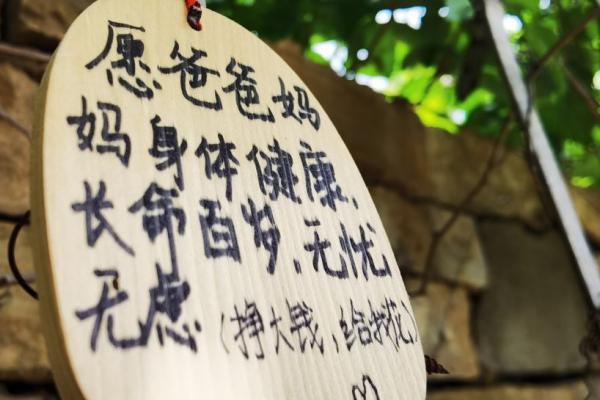 愿爸爸妈
妈身体健康,
长命百岁,无忧
无虑(挣大钱,给我花)